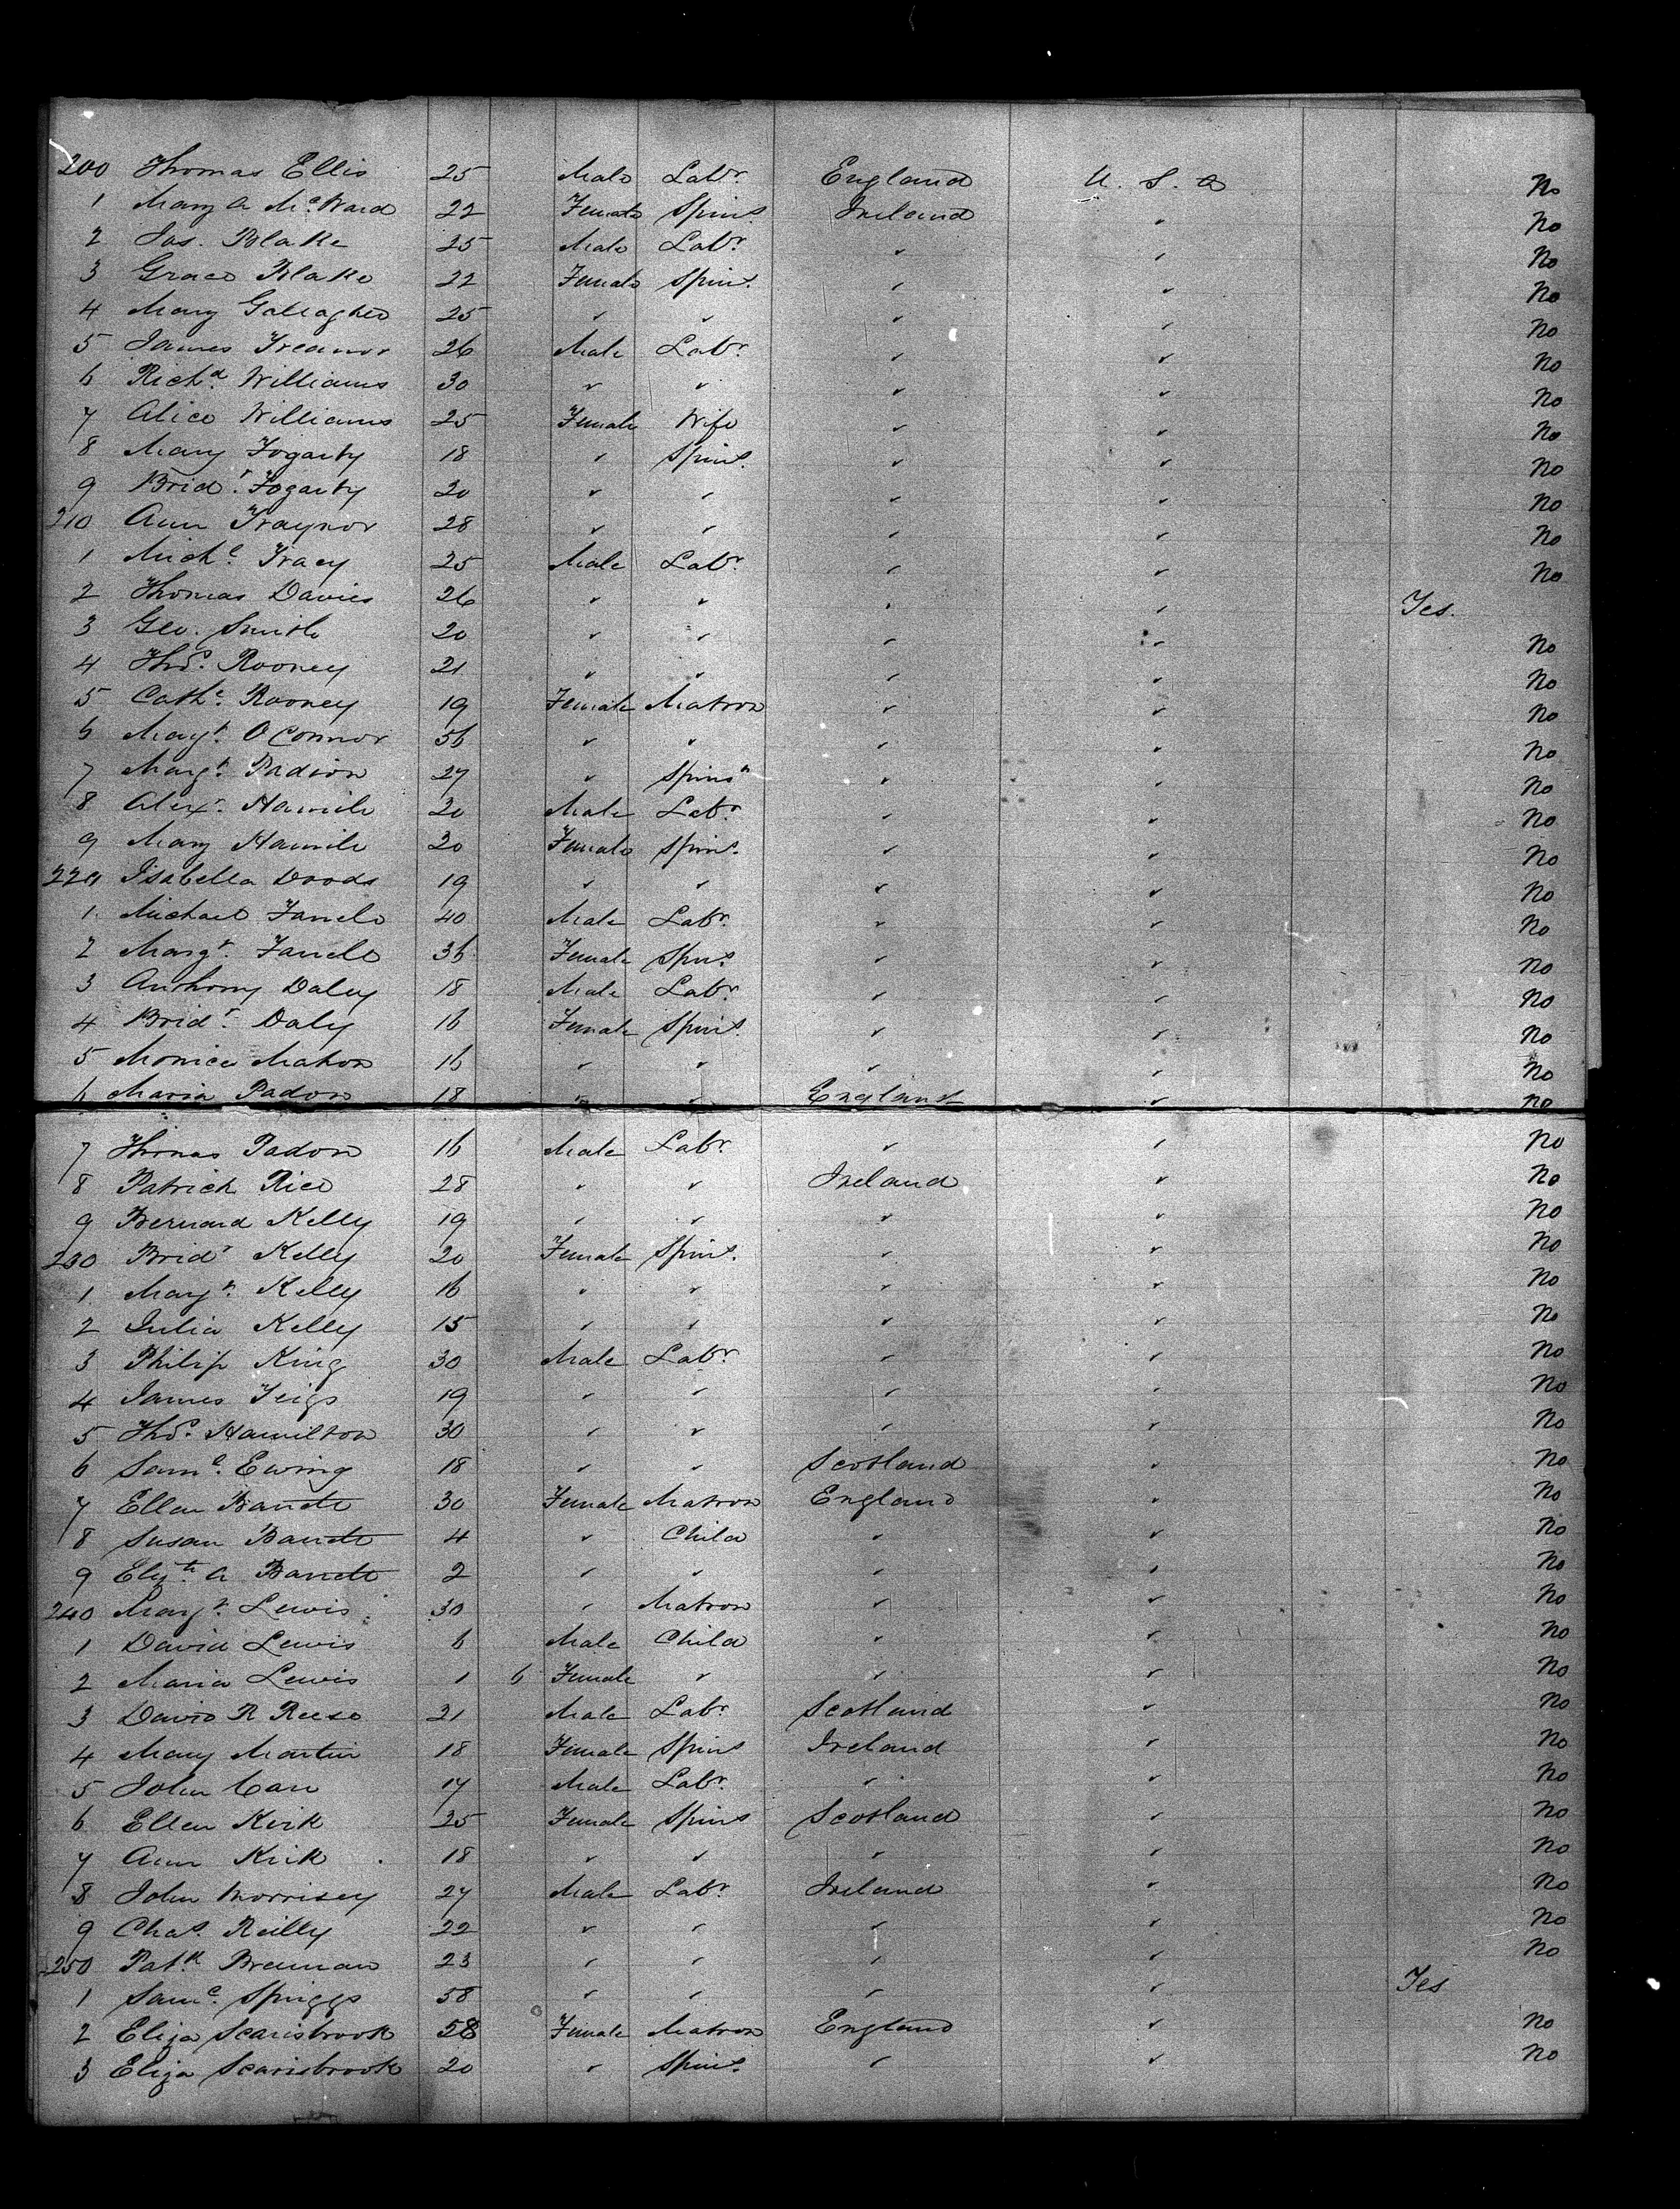 200 Thomas Ellis 25 Male Labr. England U. S. A No
1 Mary A McWard 22 Female Spinr. Ireland " No
2 Jas. Blake 25 Male Labr. " " No
3 Grace Blake 22 Female Spinr. " " No
4 Mary Gallagher 25 " " " " No
5 James Treanor 26 Male Labr. " " No
6 Richd. Williams 30 " " " " No
7 Alice Williams 25 Female Wife " " No
8 Mary Fogarty 18 " Spinr. " " No
9 Bridt. Fogarty 20 " " " " No
210 Ann Traynor 28 " " " " No
1 Michl. Tracy 25 Male Labr. " " No
2 Thomas Davies 26 " " " " Yes.
3 Geo. Smith 20 " " " " No
4 Thos. Rooney 21 " " " " No
5 Cathe. Rooney 19 Female Matron " " No
6 Margt. O Connor 56 " " " " No
7 Margt. Padion 27 " Spinsr " " No
8 Alexr. Hamile 20 Male Labr. " " No
9 Mary Hamile 20 Female Spinr. " " No
220 Isabella Dodds 19 " " " " No
1 Michael 40 Male Labr. " " No
2 Margt. 36 Female Spinr. " " No
3 Anthony Daley 18 Male Labr. " " No
4 Bridt. Daly 16 Female Spinr. " " No
5 Monica Mahon 16 " " " " No
6 Maria Padon 18 " " England " No
7 Thomas Padon 16 Male Labr. " " No
8 Patrick Rice 28 " " Ireland " No
9 Bernard Kelly 19 " " " " No
230 Bridt Kelly 20 Female Spinr. " " No
1 Margt. Kelly 16 " " " " No
2 Julia Kelly 15 " " " " No
3 Philip King 30 Male Labr. " " No
4 James 19 " " " " No
5 Thos. Hamilton 30 " " " " No
6 Saml. Ewing 18 " " Scotland " No
7 Ellen Barrett 30 Female Matron England " No
8 Susan Barrett 4 " Child " " No
9 Elizth. A Barrett 2 " " " " No
240 Margt. Lewis 30 " Matron " " No
1 David Lewis 6 Male Child " " No
2 Maria Lewis 1 6 Female " " " No
3 David R Reese 21 Male Labr Scotland " No
4 Mary Martin 18 Female Spinr Ireland " No
5 John Carr 17 Male Labr. " " No
6 Ellen Kirk 25 Female Spinr Scotland " No
7 Ann Kirk 18 " " " " No
8 John Morrisey 27 Male Labr. Ireland " No
9 Chas. Reilly 22 " " " " No
250 Patk. Brennan 23 " " " " No
1 Saml. Spriggs 58 " " " " Yes
2 Eliza Scarisbrook 58 Female Matron England " No
3 Eliza Scarisbrook 20 " Spinr. " " No